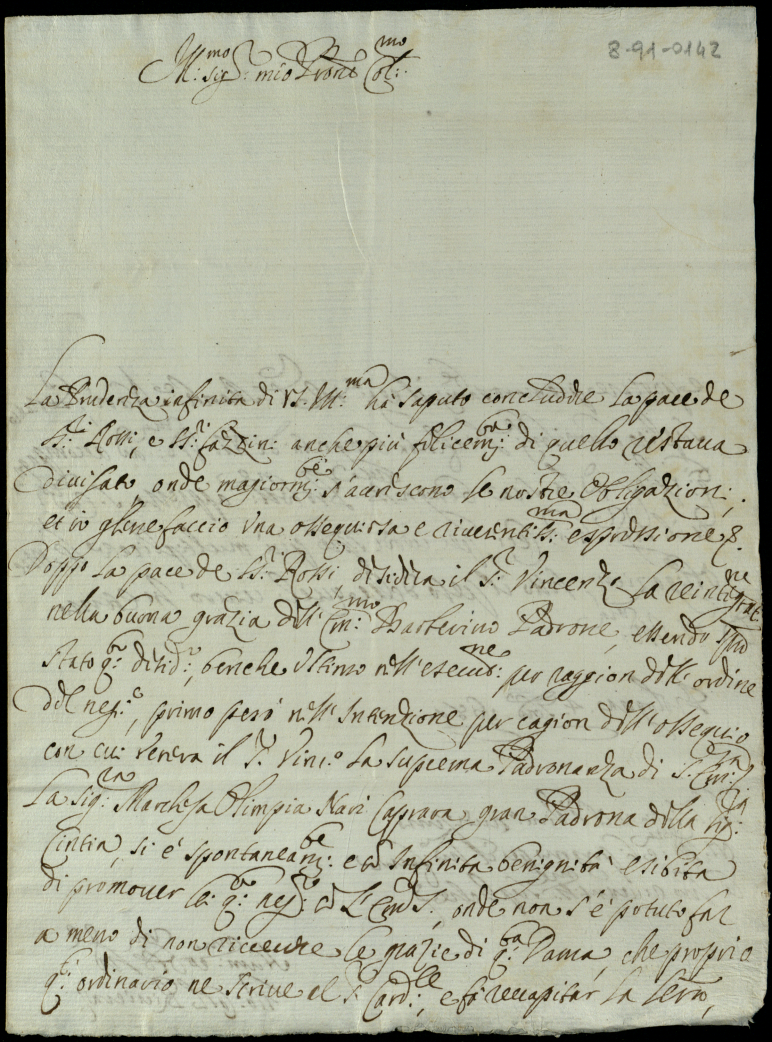 8-91-0142
Ill:mo Sig:r mio Prone Col:mo
La Prudenza infinita di V.S. Ill:ma ha saputo concluddre la pace de
SS:ri Rossi, e SS:ri anche più felicem:te di quello restava
divisato, onde magiorm:te s'accrescono le nostre Obligazioni;
et io gliene faccio una ossequiosa e riverentiss:ma espressione.
Doppo la pace de SS:ri Rossi, desidera il S:r Vincenzo la reintegrat:ne
nella buona grazia dell' Em:mo Barberino Padrone, essendo
stato q:to desid:o, benche ultimo nell'esecuz:ne per raggion dell'ordine
del neg:o, primo però nell'Intenzione per cagion dell'ossequio
con cui venera il S:r Vinc:o la suprema Padronanza di S. Em:za
La Sig:ra Marchesa Olimpia Nari Caprara gran Padrona della Sig:ra
Cintia, si è spontaneam:te e con Infinita benignità esibita
di promover q:to neg:o con S. Em:za, onde non s'è potuto far
a meno di non ricevere le grazie di q:ta Dama, che proprio
q:to ordinario ne scrive al S:r Card:le, e fà recapitar la lera,